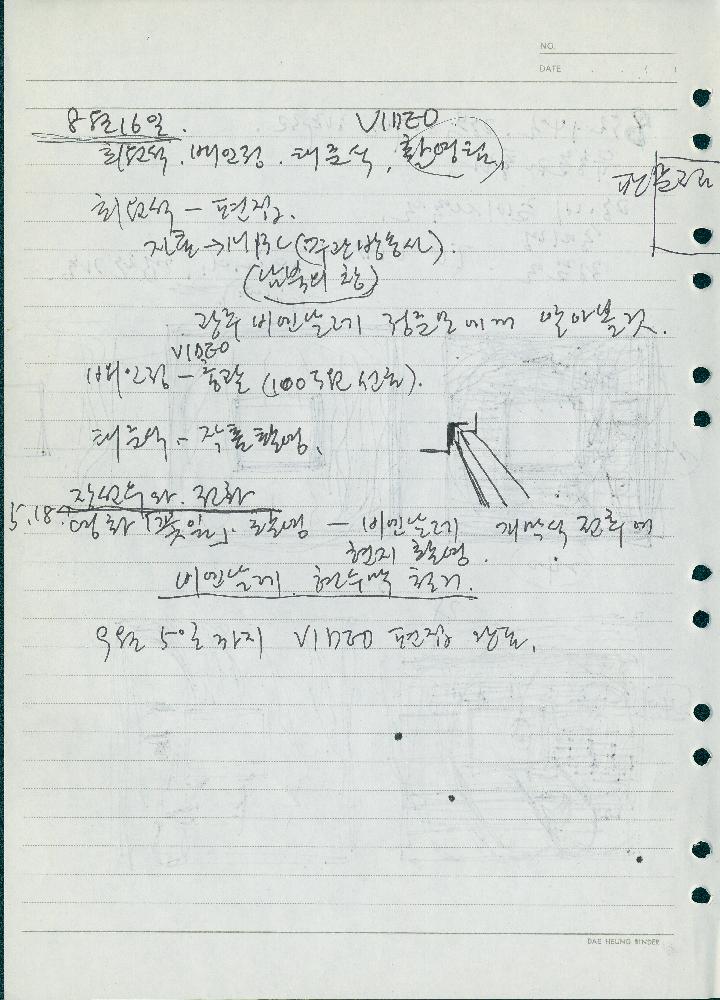 NO.
DATE
8월 16일.
VIDEO
최민석. 배인정. 태준식. 촬영팀
최민식 — 편집.
자료 → MBC (주관방송사).
(남북의 창)
광주 비엔날레 정준모에게 알아볼것.
VIDEO
배인정 — 총괄 (100만원 선불).
태준식 - 작품촬영.
장선우와 전화
5.18. 영화 「꽃잎」. 촬영 — 비엔날레 개막식 전후에
현지 촬영.
비엔날레. 현수막 철거.
9월 5일까지 VIDEO 편집 완료.
DAE HEUNG BINDER